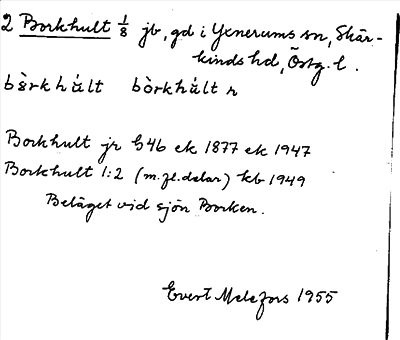 2 Borkhult 1/8 jb, gd i Yxnerums sn, Skär-
kinds hd, Östg. l.
bòrkhúlt bòrkhúltn
Borkhult jr G46 ek 1877 ek 1947
Borkhult 1:2 (m.fl.delar) kb 1949
Beläget vid sjön Borken.
Evert Melefors 1955